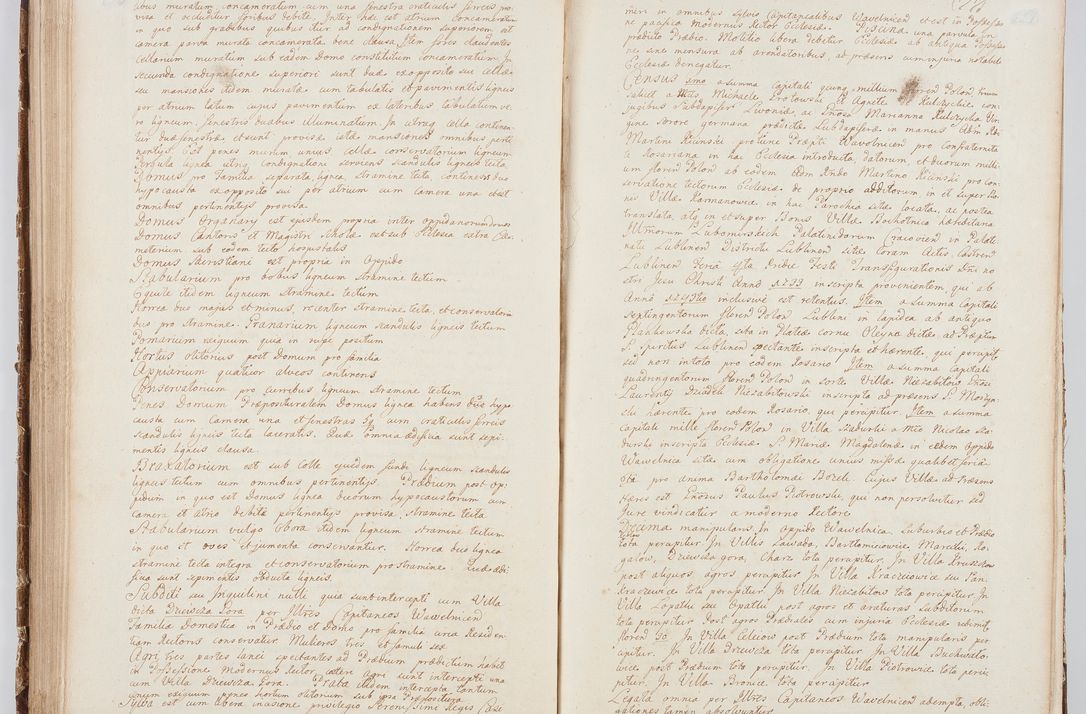 ibus muratum concameratum cum una fenestra craticulis ferreis pro
visa et occluditur foribus debite. Inter hac est atrium Concameratum
in quo sub gradibus quibus itur ad condignationem superiorem est
camera parva murata concamerata bene clausa. Item fores claudentes
Cellarium muratum sub eadem Domo constitutum concameratum. In
secunda condignatione superiori sunt duæ exopposito sui cellæ
seu mansiones itidem muratæ cum tabulatis et pavimentis ligneis
per atrium totum cujus pavimentum ex lateribus tabulatum ve
ro ligneum, fenestris duabus illuminatum. In utraq cella continen
tur duæ fenestræ et sunt provisæ istæ mansiones omnibus perti
nentijs. Est penes murum unius cellæ conservatorium ligneum
lignea utrisq condignationi serviens scandulis ligneis tecta
Domus pro Familia separata lignea, stramine tecta, continens duo
hypocausta exopposito sui per atrium cum camera una et est
omnibus pertinentijs provisa.
Domus Organary est ejusdem propria inter oppidanorum domos
Domus Cantoris et Magistri Scholæ est sub Ecclesia extra Cæ
meterium sub eodem tecto hospitalis
Domus Æeristiani est propria in Oppido
Stabularium pro bobus ligneum stramine tectum
Equile itidem ligneum stramine tectum
Horrea duo majus et minus, recenter stramine tecta, et conservatoria
duo pro stramine. Granarium ligneum scandulis ligneis tectum
Pomarium exiguum quia in rupe positum
Hortus olitorius post Domum pro familia
Appiarium quatuor alveos continens
Conservatorium pro curribus ligneum stramine tectum
Penes Domum Præposituralem Domus lignea habens duo hypo
causta cum Camera una et fenestras cum craticulis ferreis
scandulis ligneis tecta laceratis. Quæ omnia ædificia sunt sepi
mentis ligneis clausa.
Braxatorium est sub Colle ejusdem fundi ligneum scandulis
ligneis tectum cum omnibus pertinentijs. Prædium post op
pidum in quo est Domus lignea duorum hypocaustorum cum
camera et atrio debitè pertinentijs provisa stramine tecta
Stabularium vulgo Obora itidem ligneum stramine tectum
in quo et oves et jumenta conservantur. Horrea duo lignea
stramine tecta integra et conservatorium pro stramine. Quæ ædi
ficia sunt sepimentis obducta ligneis.
Subditi seu Inquilini nulli quia sunt intercepti cum Villa
dicta Drzewcza Gora per Illtres Capitaneos Wawelnicen
Familia Domestica in Prædio et Domo pro familia circa Residen
tiam Rectoris conservatur. Mulieres tres et famuli sex
Agri tres partes lanei spectantes ad Prædium prædictum habet
in Possessione Modernus Rector, cæteri Agri sunt intercepti una
cum Villa Drzewcza Gora. Prata itidem intercepta tantum
unum exiguum penes hortum olitorium sub ipsa Præpositura
Sylva est cum libera incisione privilegio Serenissimi Regis Casi
miri in omnibus sylvis Capitanealibus Wawelnicen et est in Possessio
ne pacifica modernus Rector Ecclesiæ. Piscina una parvula In
prædicto Prædio. Molitio libera debetur Ecclesiæ ab antiqua Possessio
ne sine mensura ab arendatoribus, ad præsens cum injuria notabili
Ecclesiæ denegatur.
Census 1mo a summa Capitali quinq millium floren Polon trium
scilicet a Mtco Michaele Grotowski et Agnete Kulczyckie con
jugibus Subdapifer Livoniæ, ac Gnosa Marianna Kulczycka Vir
gine sorore germana prædictæ Subdapiferæ in manus Adm Rdi
Martini Kiinski pro tunc Præpti Wavolnicen pro confraternita
te Rosariana in hac Ecclesia introducta, datorum, et duorum milli
um floren Polon ab eodem eidem Rndo Martino Kiinski pro con
servatione tectorum Ecclesiæ de proprio additorum in et super bo
nis Villæ Karmanowice in hac Parochia sitæ locata, ac postea
translata, atq in et super Bonis Villæ Bochotnica hæreditariæ
Illmorum Lubomirskich Palatinidorum Cracovien in Palati
natu Lublinen districtu Lublinen sitæ Coram Actis Castren
Lublinen Feria 4ta pridie Festi Transfigurationis Dni no
stri Jesu Christi Anno 1733 inscripta provenientem, qui ab
Anno inclusive est retentus. Item a summa Capitali
septingentorum floren Polon Lublini in lapidea ab antiquo
Plankowska dicta, sita in Platea cornu Oleyna dicta, ad Præptur
S. Spiritus Lublinen spectante inscripta et hærente, qui percipit
ur non in toto pro eodem Rosario. Item a summa Capitali
quadringentorum floren Polon in sorte Villæ Niezabitow Gnosi
Laurentij Dziadul Niezabitowski inscripta ad præsens S. Moszyn
ski hærente pro eodem Rosario, qui percipitur. Item a summa
Capitali mille floren Polon in Villa Szadurki a Mtco Nicolao Sza
durski inscripta Ecclesiæ S. Mariæ Magdalenæ in eodem Oppido
Wawelnica sitæ cum obligatione unius missæ qualibet feria
pro anima Bartholomæi Boreli. Cujus Villæ ad præsens
Hæres est Gnosus Paulus Piotrowski, qui non persolvitur sed
Jure vindicatur a moderno Rectore.
Decima manipularis In Oppido Wawelnica Suburbio et Prædio
tota percipitur. In Villis Zawada, Bartlomieiowice, Marcelii, Ro
galow, Drzewcza gora, Charz tota percipitur. In Villa Kruszkow
post aliquos agros percipitur. In Villa Kraczewice seu Pan
Kraczewice tota percipitur. In Villa Niezabitow tota percipitur. In
Villa Lopatki seu Opatki post agros et araturas subditorum
tota percipitur Post agros Prædiales cum injuria Ecclesiæ redimit
floren 30. In Villa Celeiow post Prædium tota manipularis per
cipitur. In Villa Drzewcza tota percipitur In Villa Buchalo
wice post Prædium tota percipitur. In Villa Piotrowice tota perci
pitur. In Villa Bronice tota percipitur
Legata omnia per Illtres Capitaneos Wawelnicen adempta, obli
gationes tamen absolvuntur